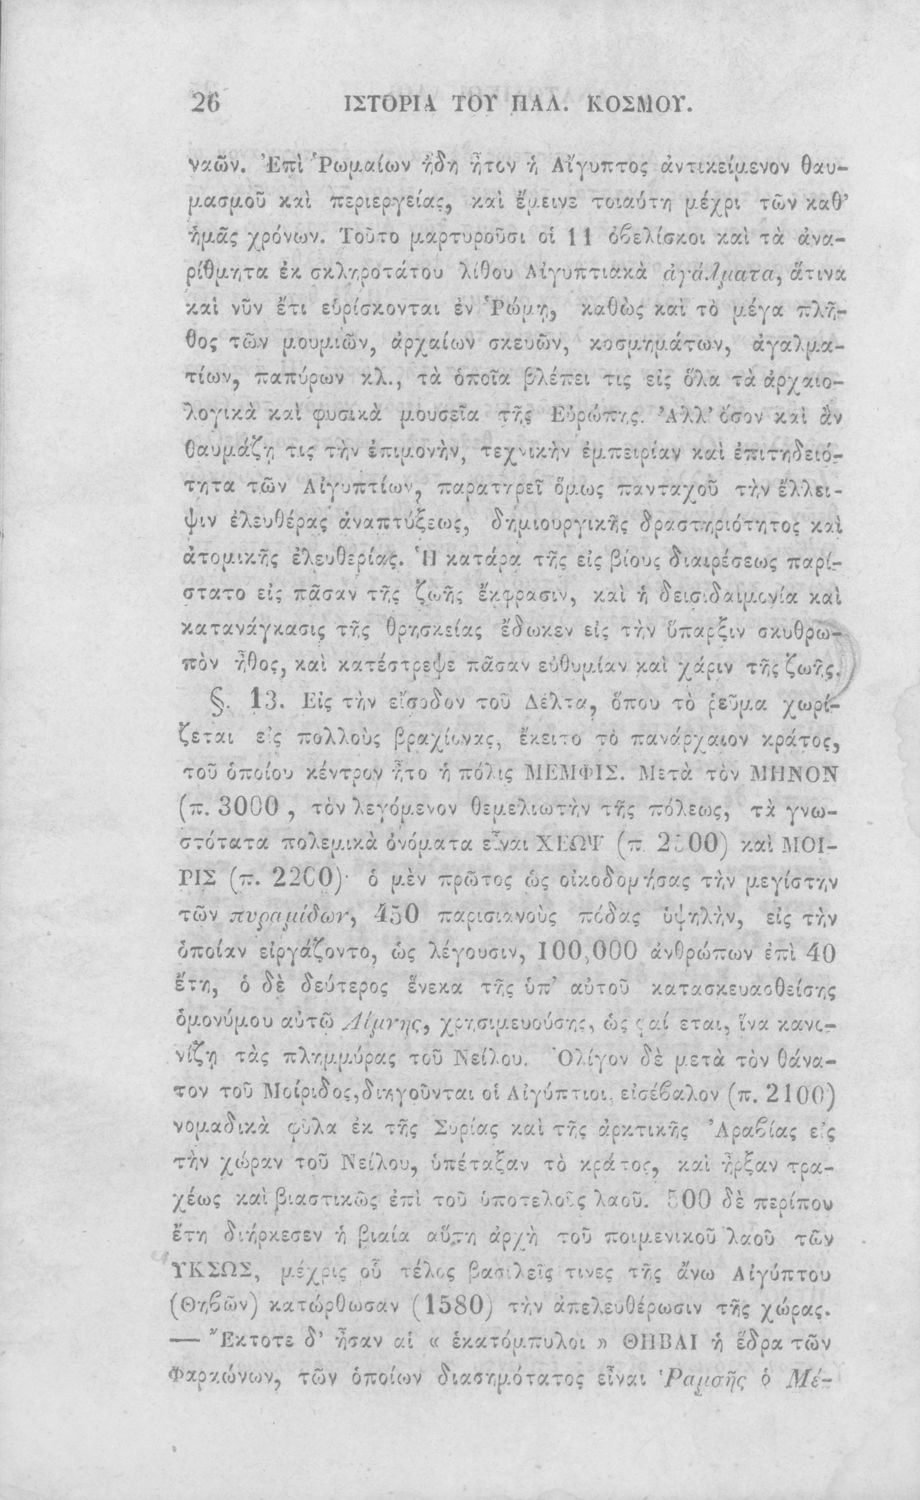 26 ΙΣΤΟΡΙΑ ΤΟΥ ΠΑΛ. ΚΟΣΜΟΥ.
ναῶν. Ἐπὶ Ῥωμαίων ἤδη ἦτον ἡ Αἴγυπτος ἀντικείμενον θαυ-
μασμοῦ καὶ περιεργείας, καὶ ἔμεινε τοιαύτη μέχρι τῶν καθ’
ἡμᾶς χρόνων. Τοῦτο μαρτυροῦσι οἱ 11 ὀβελίσκοι καὶ τὰ ἀνα-
ρίθμητα ἐκ σκληροτάτου λίθου Αἰγυπτιακὰ ἀγάλματα, ἅτινα
καὶ νῦν ἔτι εὑρίσκονται ἐν Ῥώμῃ, καθὼς καὶ τὸ μέγα πλῆ-
θος τῶν μουμιῶν, ἀρχαίων σκευῶν, κοσμημάτων, ἀγαλμα-
τίων, παπύρων κλ., τὰ ὁποῖα βλέπει τις εἰς ὅλα τὰ ἀρχαιο-
λογικὰ καὶ φυσικὰ μουσεῖα τῆς Εὐρώπης. Ἀλλ’ ὅσον καὶ ἂν
θαυμάζῃ τις τὴν ἐπιμονὴν, τεχνικὴν ἐμπειρίαν καὶ ἐπιτηδειό-
τητα τῶν Αἰγυπτίων, παρατηρεῖ ὅμως πανταχοῦ τὴν ἔλλει-
ψιν ἐλευθέρας ἀναπτύξεως, δημιουργικῆς δραστηριότητος καὶ
ἀτομικῆς ἐλευθερίας. Ἡ κατάρα τῆς εἰς βίους διαιρέσεως παρί-
στατο εἰς πᾶσαν τῆς ζωῆς ἔκφρασιν, καὶ ἡ δεισιδαιμονία καὶ
κατανάγκασις τῆς θρησκείας ἔδωκεν εἰς τὴν ὕπαρξιν σκυθρω-
πὸν ἦθος, καὶ κατέστρεψε πᾶσαν εὐθυμίαν καὶ χάριν τῆς ζωῆς.
§. 13. Εἰς τὴν εἴσοδον τοῦ Δέλτα, ὅπου τὸ ῥεῦμα χωρί-
ζεται εἰς πολλοὺς βραχίονας, ἔκειτο τὸ πανάρχαιον κράτος,
τοῦ ὁποίου κέντρον ἦτο ἡ πόλις ΜΕΜΦΙΣ. Μετὰ τὸν ΜΗΝΟΝ
(π. 3000, τὸν λεγόμενον θεμελιωτὴν τῆς πόλεως, τὰ γνω-
στότατα πολεμικὰ ὀνόματα εἶναι ΧΕΩΨ (π. 2500) καὶ ΜΟΙ-
ΡΙΣ (π. 2200)· ὁ μὲν πρῶτος ὡς οἰκοδομήσας τὴν μεγίστην
τῶν πυραμίδων, 450 παρισιανοὺς πόδας ὑψηλὴν, εἰς τὴν
ὁποίαν εἰργάζοντο, ὡς λέγουσιν, 100,000 ἀνθρώπων ἐπὶ 40
ἔτη, ὁ δὲ δεύτερος ἕνεκα τῆς ὑπ’ αὐτοῦ κατασκευασθείσης
ὁμονύμου αὐτῷ Λίμνης, χρησιμευούσης, ὡς φαίνεται, ἵνα κανο-
νίζῃ τὰς πλημμύρας τοῦ Νείλου. Ὀλίγον δὲ μετὰ τὸν θάνα-
τον τοῦ Μοίριδος, διηγοῦνται οἱ Αἰγύπτιοι, εἰσέβαλον (π. 2100)
νομαδικὰ φῦλα ἐκ τῆς Συρίας καὶ τῆς ἀρκτικῆς Ἀραβίας εἰς
τὴν χώραν τοῦ Νείλου, ὑπέταξαν τὸ κράτος, καὶ ἦρξαν τρα-
χέως καὶ βιαστικῶς ἐπὶ τοῦ ὑποτελοῦς λαοῦ. 500 δὲ περίπου
ἔτη διήρκεσεν ἡ βιαία αὕτη ἀρχὴ τοῦ ποιμενικοῦ λαοῦ τῶν
ΥΚΣΩΣ, μέχρις οὗ τέλος βασιλεῖς τινες τῆς ἄνω Αἰγύπτου
(Θηβῶν) κατώρθωσαν (1580) τὴν ἀπελευθέρωσιν τῆς χώρας.
— Ἔκτοτε δ’ ἦσαν αἱ « ἑκατόμπυλοι » ΘΗΒΑΙ ἡ ἕδρα τῶν
Φαραώνων, τῶν ὁποίων διασημότατος εἶναι Ῥαμσῆς ὁ Μέ-